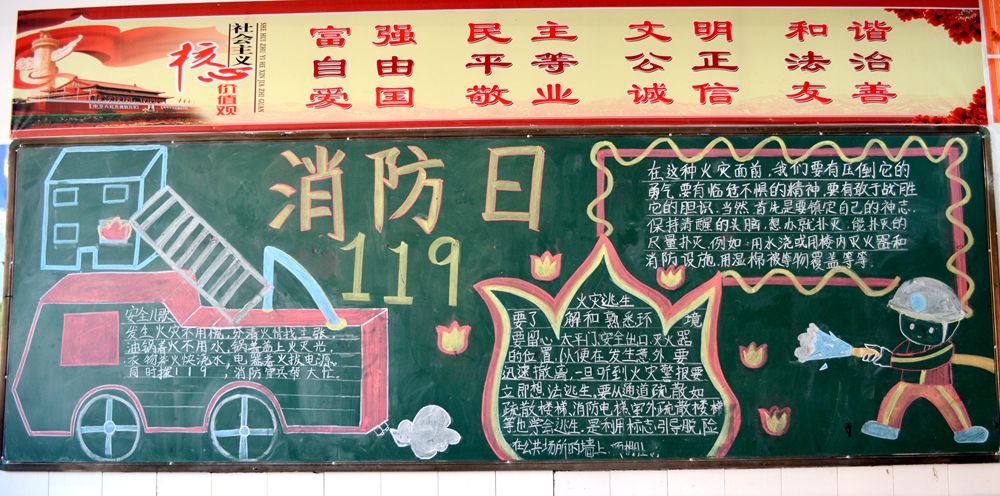 社会主义
核心
价值观
SHE HUI ZHU YI HE XIN JIA ZHI GUAN
富强 民主 文明 和谐
自由 平等 公正 法治
爱国 敬业 诚信 友善
消防日
119
在这种火灾面前,我们要有压倒它的
勇气,要有临危不惧的精神,要有敢于战胜
它的胆识,当然,首先是要镇定自己的神志,
保持清醒的头脑,想办就扑灭,能扑灭的
尽量扑灭,例如,用水浇或用楼内灭火器和
消防设施,用湿棉被等物覆盖等等。
安全儿歌
发生火灾不用慌,分清火情找主张,
油锅着火不用水,锅盖盖上火灭
衣物着火快浇水,电器着火拔电源,
同时拨119,消防官兵帮大忙。
火灾逃生
要了解和熟悉环境
要留心太平门,安全出口,灭火器
的位置,以便在发生意外要
迅速撤离,一旦听到火灾警报要
立即想法逃生,要从通道疏散如
疏散楼梯,消防电梯,室外疏散楼梯
等也学会逃生,是利用标志,引导脱险
在公共场所的墙上